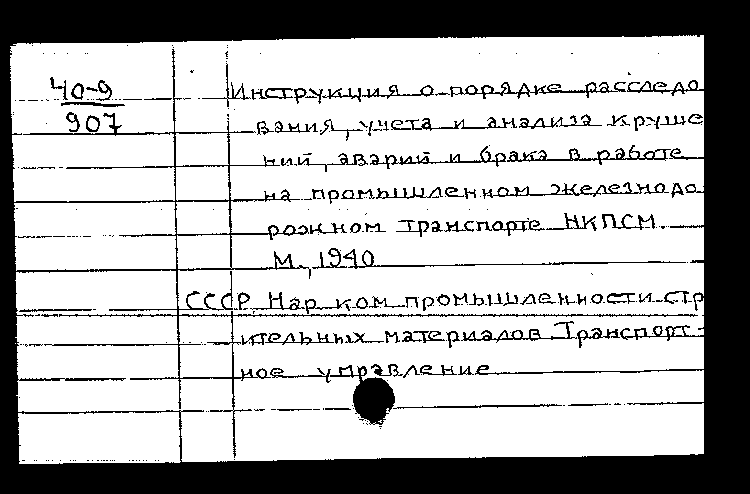 40-9
907
Инструкция о порядке расследо
вания, учета и анализа круше
ний, аварий и брака в работе
на промышленном железнодо
рожном транспорте НКПСМ.
М., 1940
СССР. Нар ком промышленности стр
ительных материалов. Транспорт-
ное управление